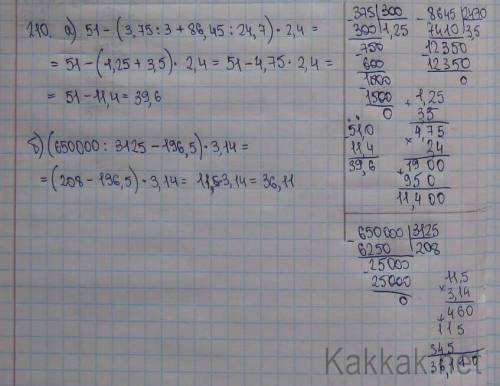 210. а) 51-(3,75:3+86,45:24,7)·2,4=
=51-(1,25+3,5)·2,4=51-4,75·2,4=
=51-11,4=39,6
б)(650000:3125-196,5)·3,14=
=(208-196,5)·3,14=11,5·3,14=36,11
375|300
300|1,25
750
600
1500
1500
0
8645|2470
7410|35
12350
12350
0
+1,25
35
4,75
×24
1900
+950
11,400
-510
114
39,6
-650000|3125
6250|208
-25000
25000
0
×11,5
3,14
+460
115
345
36,110
Kakkak.net